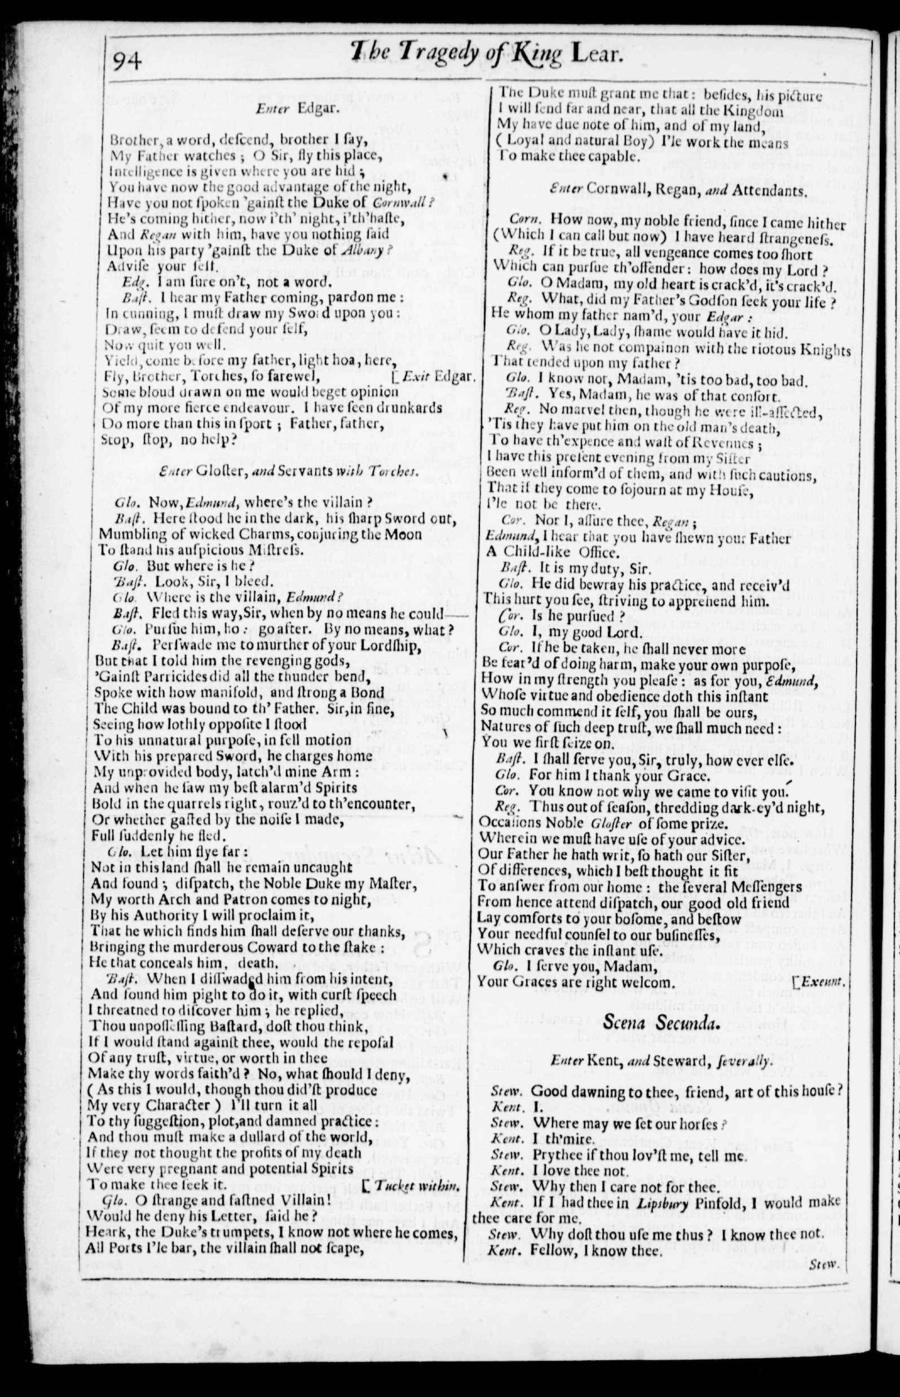 94
The Tragedy of King Lear.
Enter Edgar.
Brother, a word, deſcend, brother I ſay,
My Father watches ; O Sir, fly this place,
Intelligence is given where you are hid ;
You have now the good advantage of the night,
Have you not ſpoken 'gainſt the Duke of Cornwall?
He's coming hither, now i'th' night, i'th'haſte,
And Regan with him, have you nothing ſaid
Upon his party 'gainſt the Duke of Albany?
Adviſe your ſelf.
Edg. I am ſure on't, not a word.
Baſt. I hear my Father coming, pardon me :
In cunning, I muſt draw my Sword upon you :
Draw, ſeem to defend your ſelf,
Now quit you well.
Yield, come before my father, light hoa, here,
Fly, Brother, Torches, ſo farewel, [ Exit Edgar.
Some bloud drawn on me would beget opinion
Of my more fierce endeavour. I have ſeen drunkards
Do more than this in ſport ; Father, father,
Stop, ſtop, no help?
Enter Gloſter, and Servants with Torches.
Glo. Now, Edmund, where's the villain ?
Baſt. Here ſtood he in the dark, his ſharp Sword out,
Mumbling of wicked Charms, conjuring the Moon
To ſtand his auſpicious Miſtreſs.
Glo. But where is he?
Baſt. Look, Sir, I bleed.
Glo. Where is the villain, Edmund?
Baſt. Fled this way, Sir, when by no means he could——
Glo. Purſue him, ho : go after. By no means, what ?
Baſt. Perſwade me to murther of your Lordſhip,
But that I told him the revenging gods,
'Gainſt Parricides did all the thunder bend,
Spoke with how manifold, and ſtrong a Bond
The Child was bound to th' Father. Sir, in fine,
Seeing how lothly oppoſite I ſtood
To his unnatural purpoſe, in fell motion
With his prepared Sword, he charges home
My unprovided body, latch'd mine Arm :
And when he ſaw my beſt alarm'd Spirits
Bold in the quarrels right, rouz'd to th'encounter,
Or whether gaſted by the noiſe I made,
Full ſuddenly he fled.
Glo. Let him flye far :
Not in this land ſhall he remain uncaught
And found ; diſpatch, the Noble Duke my Maſter,
My worth Arch and Patron comes to night,
By his Authority I will proclaim it,
That he which finds him ſhall deſerve our thanks,
Bringing the murderous Coward to the ſtake :
He that conceals him, death.
Baſt. When I diſſwaded him from his intent,
And found him pight to do it, with curſt ſpeech
I threatned to diſcover him ; he replied,
Thou unpoſſeſſing Baſtard, doſt thou think,
If I would ſtand againſt thee, would the repoſal
Of any truſt, virtue, or worth in thee
Make thy words faith'd ? No, what ſhould I deny,
( As this I would, though thou did'ſt produce
My very Character ) I'll turn it all
To thy ſuggeſtion, plot, and damned practice :
And thou muſt make a dullard of the world,
If they not thought the profits of my death
Were very pregnant and potential Spirits
To make thee ſeek it. [ Tucket within.
Glo. O ſtrange and faſtned Villain!
Would he deny his Letter, ſaid he ?
Heark, the Duke's trumpets, I know not where he comes,
All Ports I'le bar, the villain ſhall not ſcape,
The Duke muſt grant me that : beſides, his picture
I will ſend far and near, that all the Kingdom
My have due note of him, and of my land,
( Loyal and natural Boy) I'le work the means
To make thee capable.
Enter Cornwall, Regan, and Attendants.
Corn. How now, my noble friend, ſince I came hither
(Which I can call but now) I have heard ſtrangeneſs.
Reg. If it be true, all vengeance comes too ſhort
Which can purſue th'offender : how does my Lord ?
Glo. O Madam, my old heart is crack'd, it's crack'd.
Reg. What, did my Father's Godſon ſeek your life ?
He whom my father nam'd, your Edgar :
Glo. O Lady, Lady, ſhame would have it hid.
Reg. Was he not compainon with the riotous Knights
That tended upon my father ?
Glo. I know not, Madam, 'tis too bad, too bad.
Baſt. Yes, Madam, he was of that conſort.
Reg. No marvel then, though he were ill-affected,
'Tis they have put him on the old man's death,
To have th'expence and waſt of Revenues ;
I have this preſent evening from my Siſter
Been well inform'd of them, and with ſuch cautions,
That if they come to ſojourn at my Houſe,
I'le not be there.
Cor. Nor I, aſſure thee, Regan ;
Edmund, I hear that you have ſhewn your Father
A Child-like Office.
Baſt. It is my duty, Sir.
Glo. He did bewray his practice, and receiv'd
This hurt you ſee, ſtriving to apprehend him.
Cor. Is he purſued ?
Glo. I, my good Lord.
Cor. If he be taken, he ſhall never more
Be fear'd of doing harm, make your own purpoſe,
How in my ſtrength you pleaſe : as for you, Edmund,
Whoſe virtue and obedience doth this inſtant
So much commend it ſelf, you ſhall be ours,
Natures of ſuch deep truſt, we ſhall much need :
You we firſt ſeize on.
Baſt. I ſhall ſerve you, Sir, truly, how ever elſe.
Glo. For him I thank your Grace.
Cor. You know not why we came to viſit you.
Reg. Thus out of ſeaſon, thredding dark-ey'd night,
Occaſions Noble Gloſter of ſome prize.
Wherein we muſt have uſe of your advice.
Our Father he hath writ, ſo hath our Siſter,
Of differences, which I beſt thought it fit
To anſwer from our home : the ſeveral Meſſengers
From hence attend diſpatch, our good old friend
Lay comforts to your boſome, and beſtow
Your needful counſel to our buſineſſes,
Which craves the inſtant uſe.
Glo. I ſerve you, Madam,
Your Graces are right welcom. [Exeunt.
Scena Secunda.
Enter Kent, and Steward, ſeverally.
Stew. Good dawning to thee, friend, art of this houſe ?
Kent. I.
Stew. Where may we ſet our horſes ?
Kent. I th'mire.
Stew. Prythee if thou lov'ſt me, tell me.
Kent. I love thee not.
Stew. Why then I care not for thee.
Kent. If I had thee in Lipsbury Pinfold, I would make
thee care for me.
Stew. Why doſt thou uſe me thus ? I know thee not.
Kent. Fellow, I know thee.
Stew.